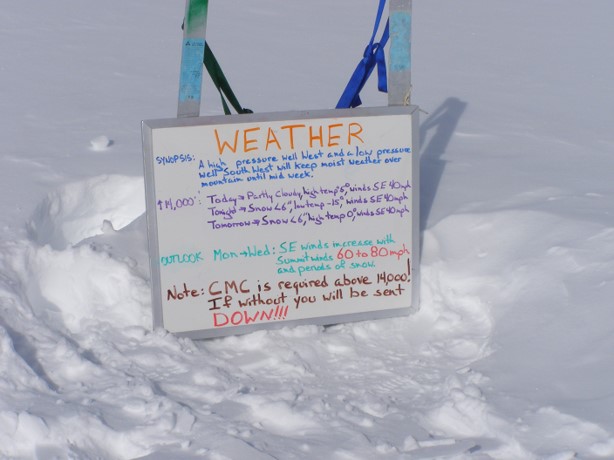 WEATHER
SYNOPSIS: A high pressure well West and a low pressure
well South West will keep moist weather over
mountain until mid week.
14,000': Today → Partly Cloudy, high temp 5°, winds SE 40mph
Tonight → Snow <6", low temp -15°, winds SE 40mph
Tomorrow → Snow <6", high temp 0°, winds SE 40mph
OUTLOOK Mon→Wed: SE winds increase with
summit winds 60 to 80 mph
and periods of snow.
Note: CMC is required above 14,000!
If without you will be sent
DOWN!!!